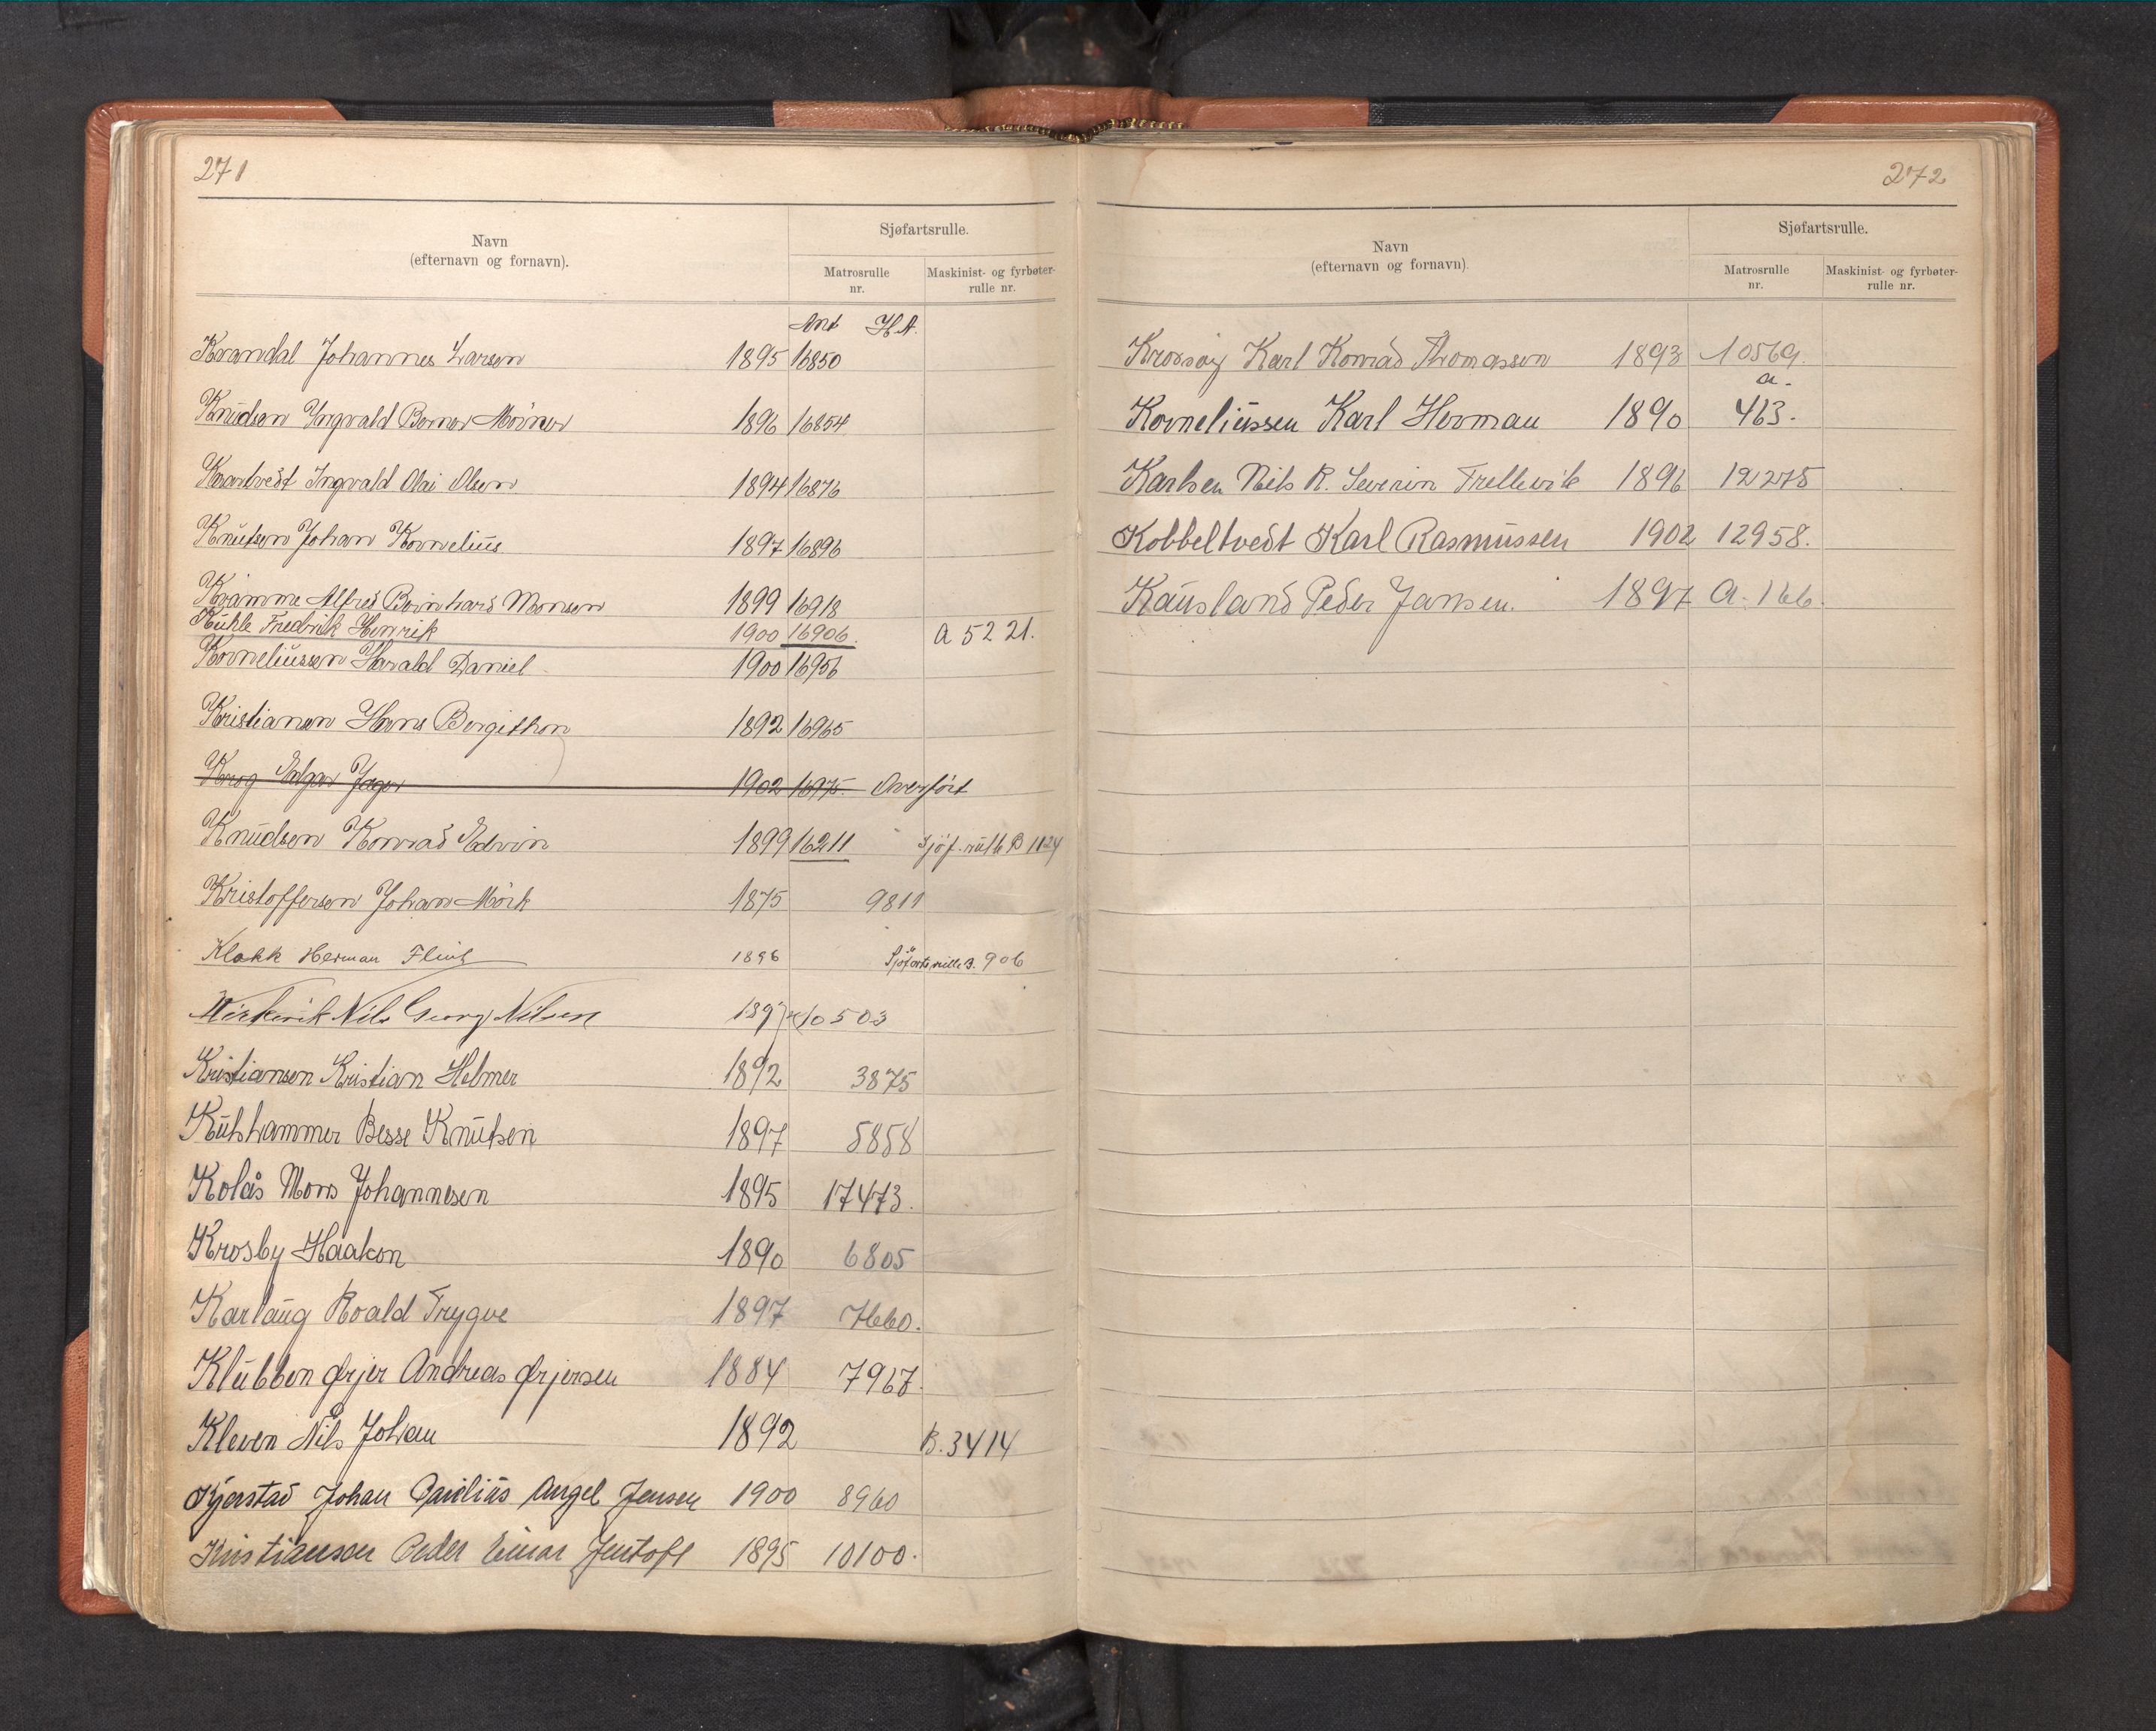 271
Navn
(efternavn og fornavn).
Sjøfartsrulle.
Matrosrulle
nr.
Maskinist- og fyrbøter-
rulle nr.
Ant H.A.
Kvandal Johannes Larsen 1895 16850
Knudsen Yngvald Berner Mörner 1896 16854
Kvartvedt Ingvald Olai Olsen 1894 16876
Knutsen Johan Kornelius 1897 16896
Kvamme Alfred Bernhard Monsen 1899 16918
Kühle Fredrik Henrik 1900 16906. a 5221.
Korneliussen Harald Daniel 1900 16956
Kristiansen Hans Bergithon 1892 16965
Krog Edgar Jager 1902 16975. Overført
Knudsen Konrad Edvin 1899 16211 Sjöf. rulle B 1124
Kristoffersen Johan Mörk 1875 9811
Klokk Herman Flint 1896 Sjöfartsrulle B. 906
Nils Georg Nilsen 10503
Kristiansen Kristian Helmer 1892 3875
Kühhammer Besse Knutsen 1897 5858
Kolås Mons Johannesen 1895 17473.
Krosby Haakon 1890 6805
Karlaug Roald Trygve 1897 7660.
Klubben Ørjer Andreas Ørjersen 1884 7967.
Kleven Nils Johan 1892 B. 3414
Kjerstad Johan Angel Jensen 1900 8960
Kristiansen Peder Einar Jentoft 1895 10100.
272
Navn
(efternavn og fornavn).
Sjøfartsrulle.
Matrosrulle
nr.
Maskinist- og fyrbøter-
rulle nr.
Krossøy Karl Konrad Thomassen 1893 10569.
a.
Korneliussen Karl Herman 1890 463.
Karlsen Nils R. Severin Trellevik 1896 12275
Kobbeltvedt Karl Rasmussen 1902 12958.
Kausland Peder Jansen. 1897 A. 166.